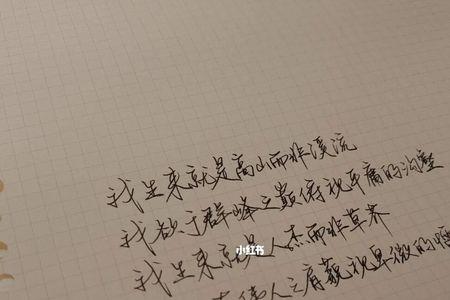 我生来就是高山而非溪流
我欲于群峰之巅俯视平庸的沟壑
我生来就是人杰而非草芥
伟人之肩藐视卑微的懦
小红书